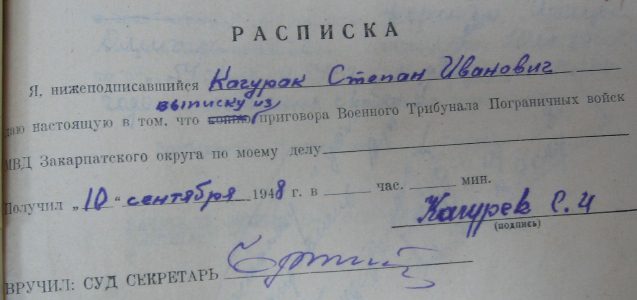 РАСПИСКА
Я, нижеподписавшийся Кагурак Степан Иванович
выписку из
даю настоящую в том, что копию приговора Военного Трибунала Пограничных войск
МВД Закарпатского округа по моему делу
Получил „10“ сентября 1948 г. в час. мин.
Кагурек С. И
(подпись)
ВРУЧИЛ: СУД СЕКРЕТАРЬ